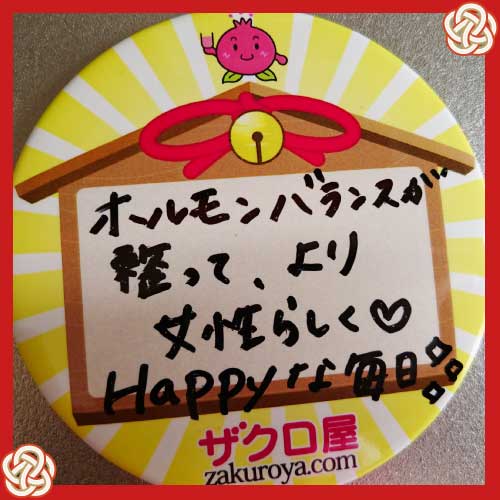 ホルモンバランスが、
整って、より
女性らしく♡
Happyな毎日
ザクロ屋
zakuroya.com